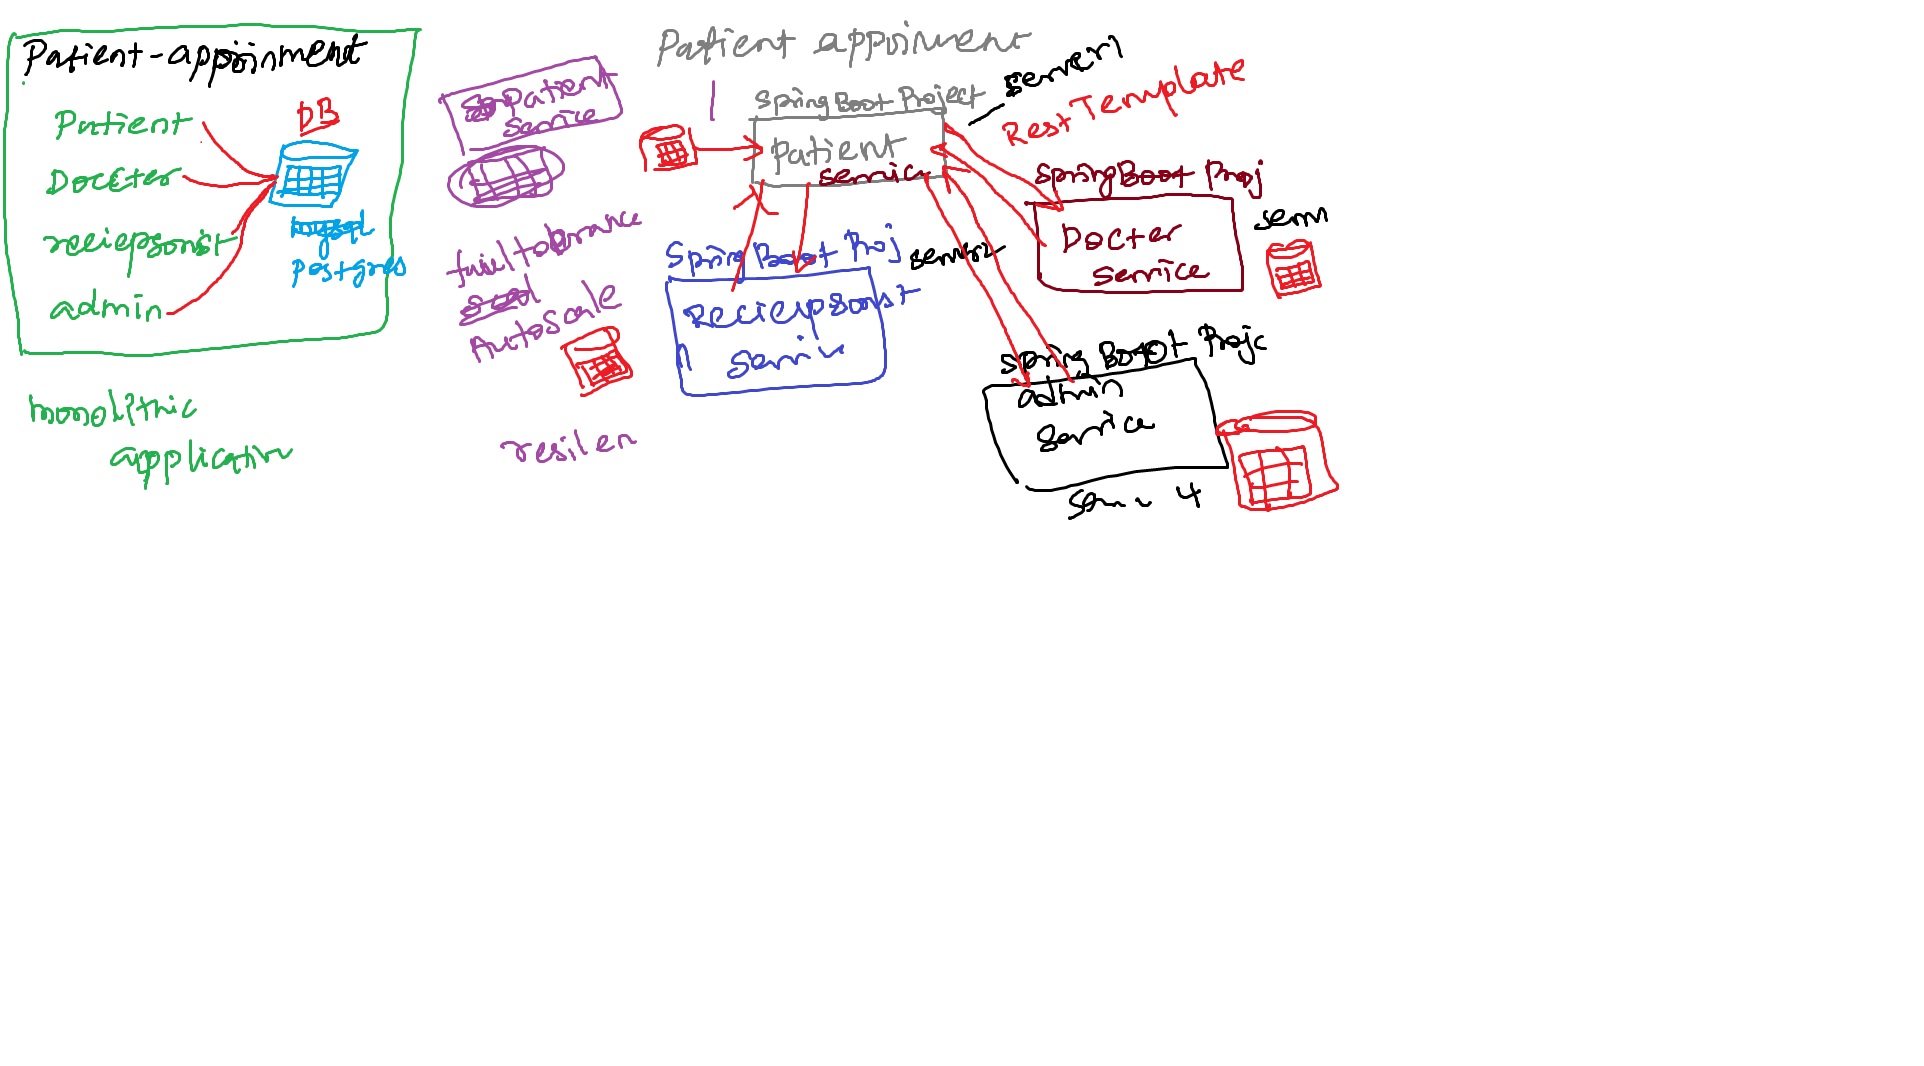 Patient-appoinment
Patient
DB
Docter
reciepsonist
mysql
Postgres
admin
monolithic
application
Patient
Service
failtolerance
AutoScale
resilen
Patient appoinment
Spring Boot Project
server1
RestTemplate
Patient
service
Spring Boot Proj
Docter
Service
Spring Boot Proj
Reciepsonst
Servic
Spring Boot Projc
admin
Service
4